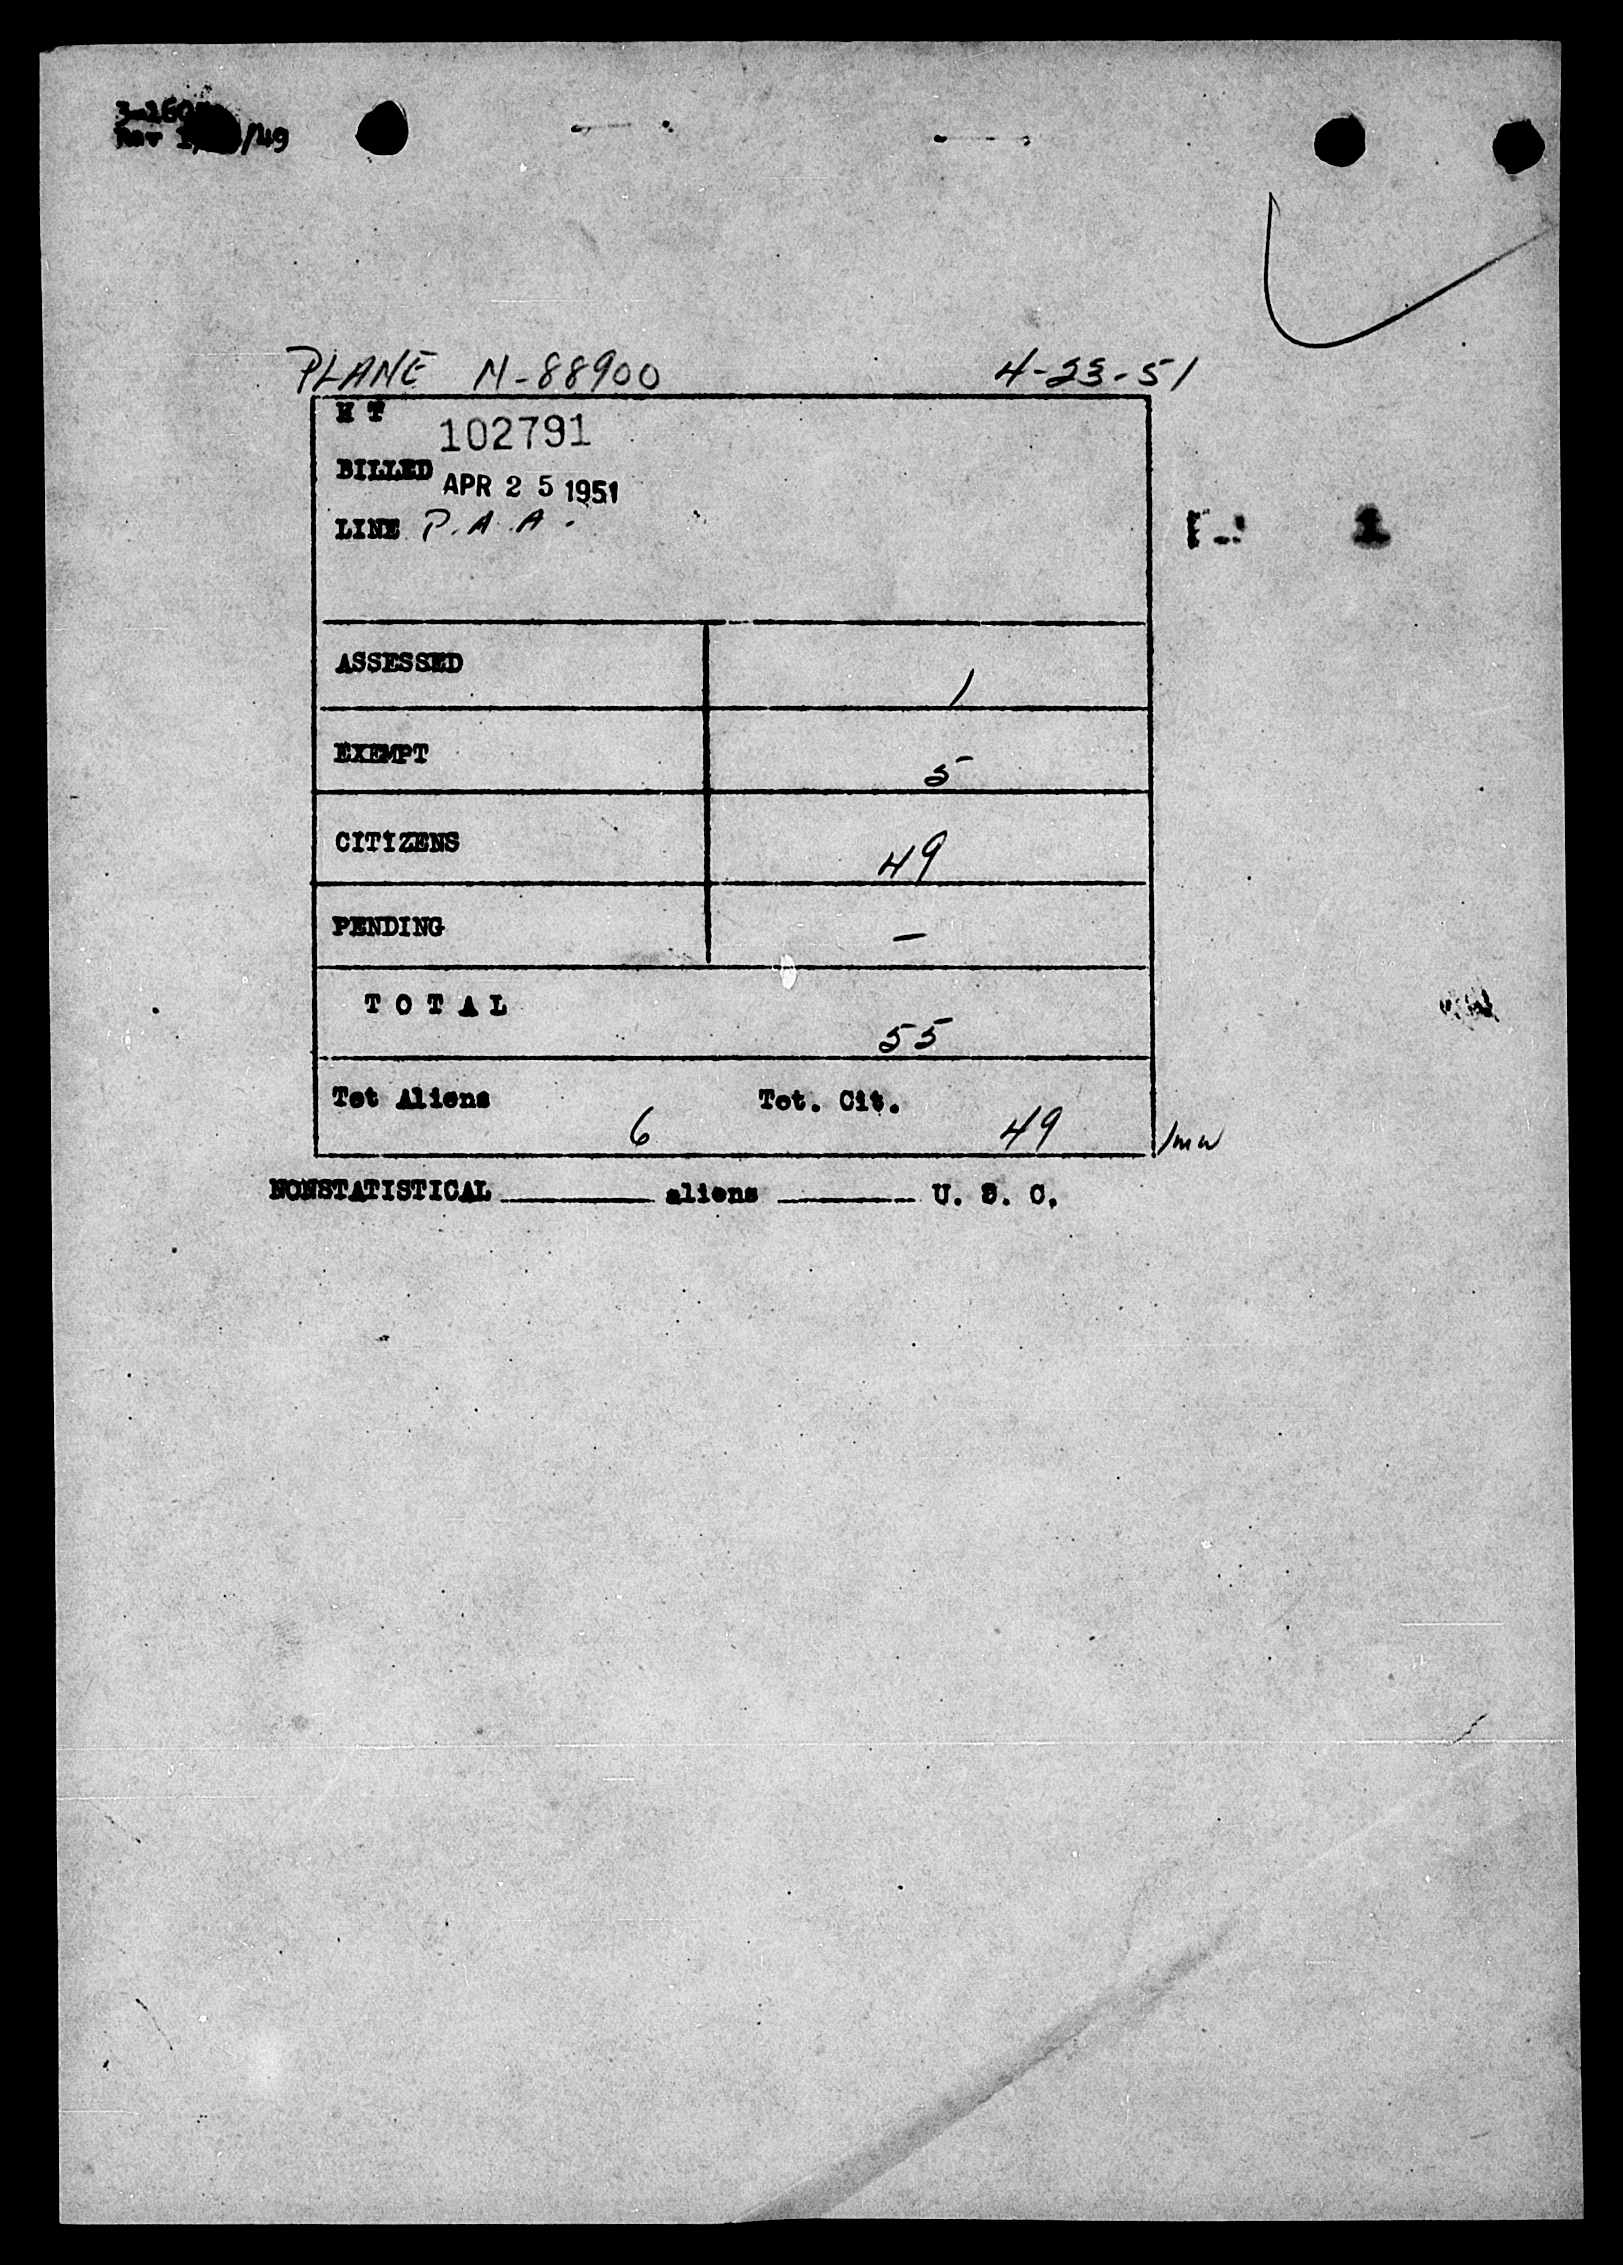 PLANE N-88900 4-23-51
H T 102791
BILLED APR 25 1951
LINE P.A.A.
ASSESSED 1
EXEMPT 5
CITIZENS 49
PENDING —
T O T A L 55
Tot Aliens 6 Tot. Cit. 49 /mw
NONSTATISTICAL ______ aliens ______ U. S. C.